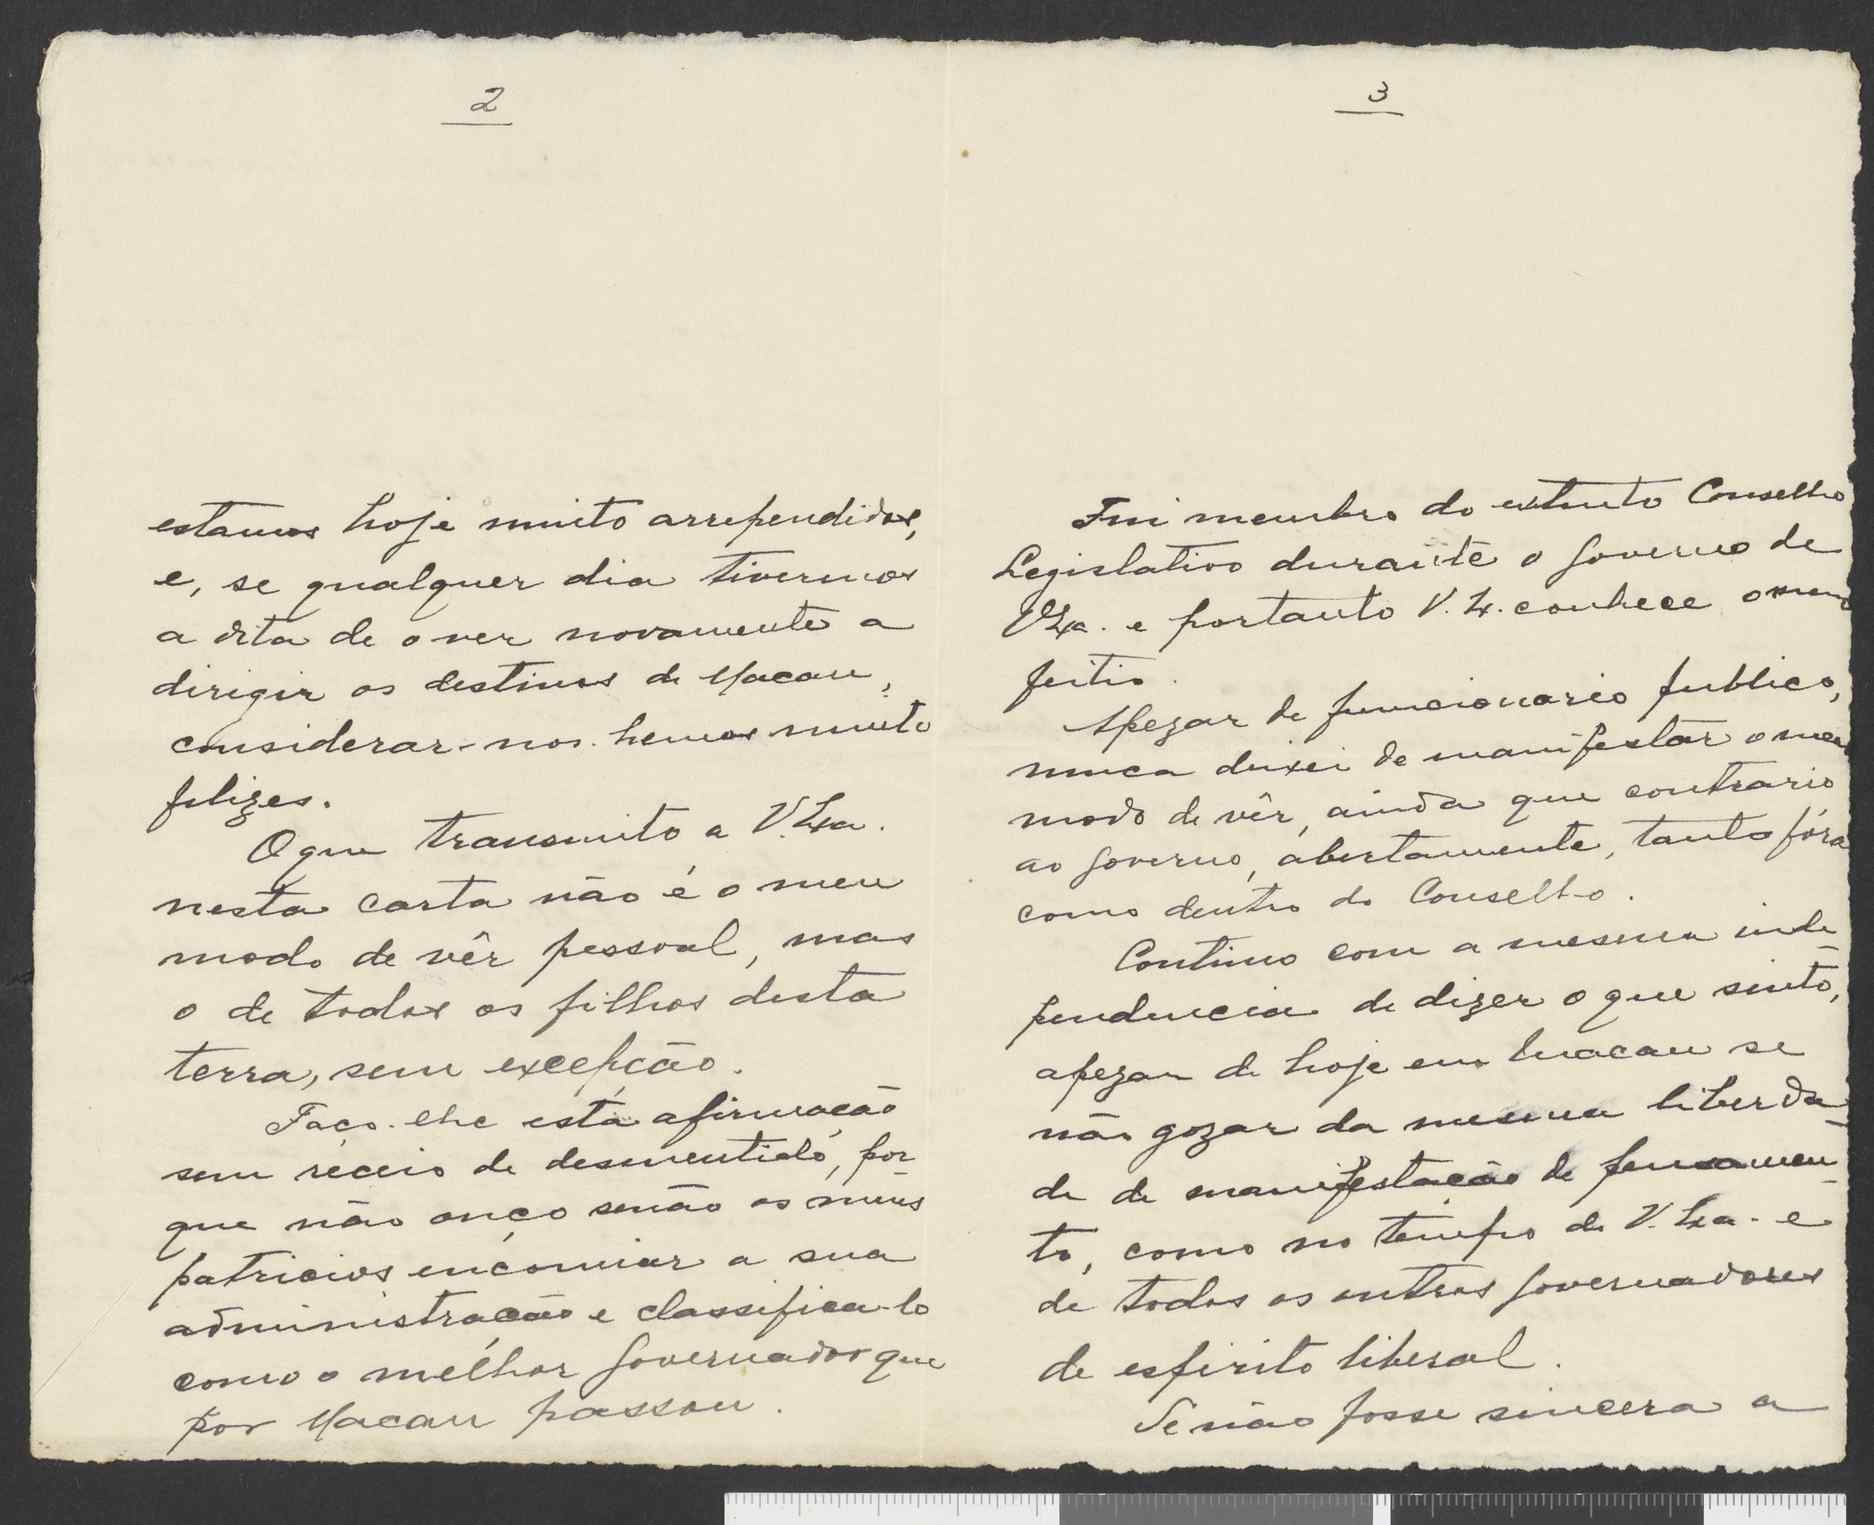 2
estamos hoje muito arrependidos,
e, se qualquer dia tivermos
a dita de o ver novamente a
dirigir os destinos de Macau,
considerar-nos-hemos muito
felizes.
O que transmito a V. Exa.
nesta carta não é o meu
modo de vêr pessoal, mas
o de todos os filhos desta
terra, sem excepção.
Faço-lhe esta afirmação
sem receio de desmentido, por-
que não ouço senão os meus
patricios encomiar a sua
administração e classifica-lo
como o melhor Governador que
por Macau passou.
3
Fui membro do extinto Conselho
Legislativo durante o Governo de
V. Exa. e portanto V. Ex. conhece o meu
feitio.
Apezar de funcionario publico,
nunca deixei de manifestar o meu
modo de vêr, ainda que contrario
ao Governo, abertamente, tanto fóra
como dentro do Conselho.
Continuo com a mesma inde-
pendencia de dizer o que sinto,
apezar de hoje em Macau se
não gozar da mesma liberda-
de de manifestação de pensamen-
to, como no tempo de V. Exa. e
de todos os outros Governadores
de espirito liberal.
Se não fosse sincera a